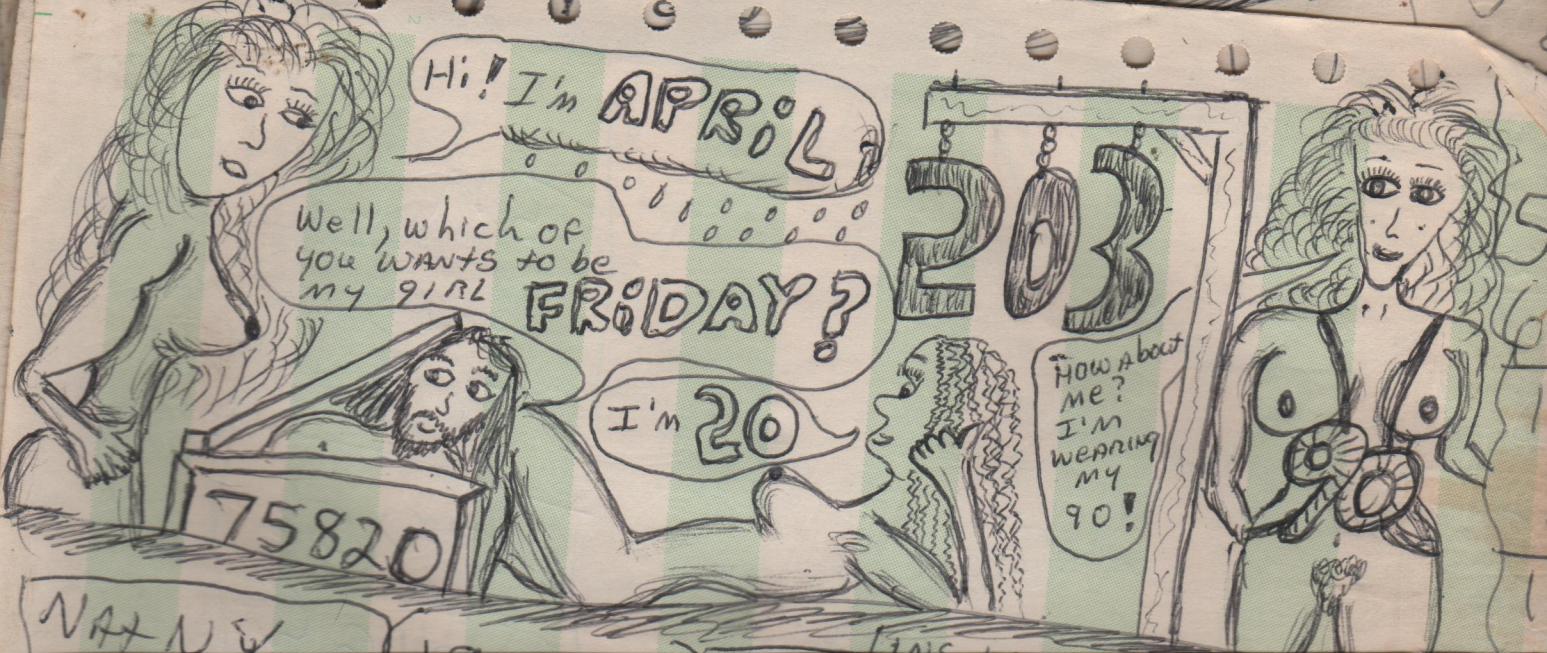 Hi! I'm APRiL
203
Well, which of
you WANTS to be
my GIRL
FRiDAY?
I'm 20
HOW About
me?
I'M
WEARING
MY
90!
75820